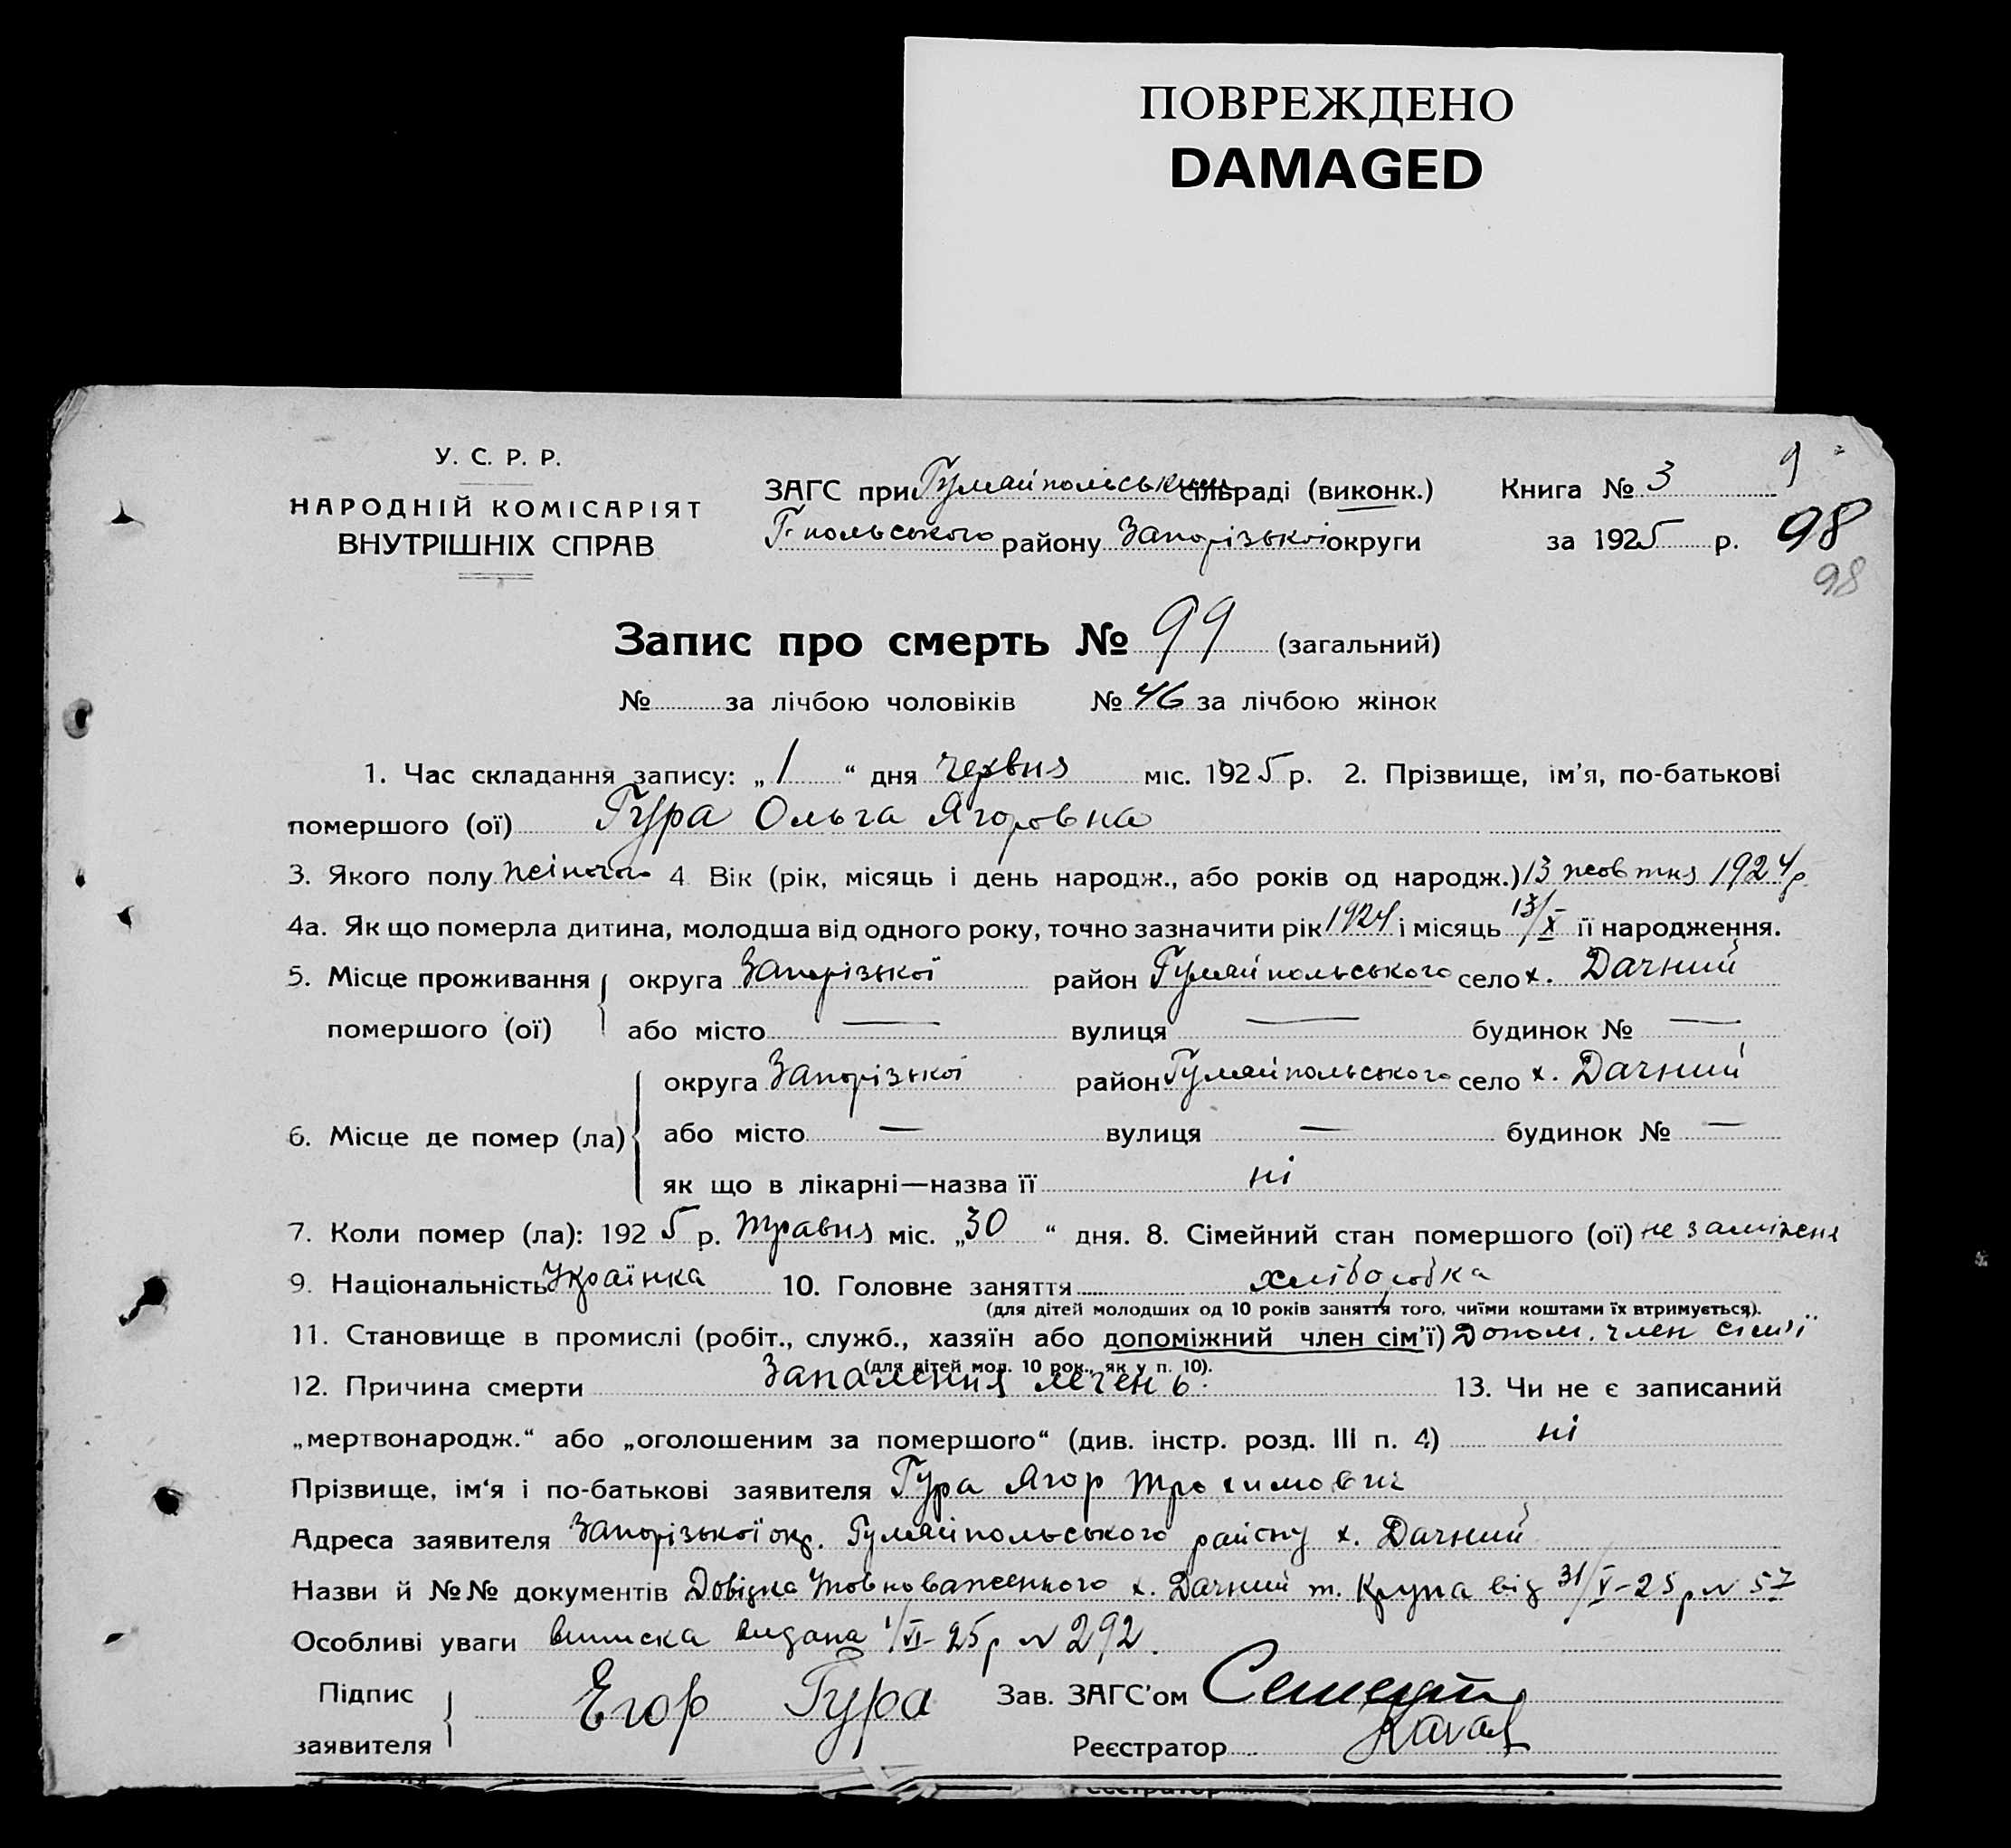 ПОВРЕЖДЕНО
DAMAGED
У. С. Р. Р.
НАРОДНІЙ КОМІСАРІЯТ
ВНУТРІШНІХ СПРАВ
ЗАГС при Гуляйпольський сільраді (виконк.) Книга № 3 9
Г-польського району Запорізької округи за 1925 р. 98
98
Запис про смерть № 99 (загальний)
№ за лічбою чоловіків № 46 за лічбою жінок
1. Час складання запису: „1“ дня червня міс. 1925 р. 2. Прізвище, ім’я, по-батькові
помершого (ої) Гура Ольга Ягоровна
3. Якого полу жіночого 4. Вік (рік, місяць і день народж., або років од народж.) 13 жовтня 1924 р.
4а. Як що померла дитина, молодша від одного року, точно зазначити рік 1924 і місяць 13/X її народження.
5. Місце проживання округа Запорізької район Гуляйпольського село х. Дачний
помершого (ої) або місто — вулиця — будинок № —
округа Запорізької район Гуляйпольського село х. Дачний
6. Місце де помер (ла) або місто — вулиця — будинок № —
як що в лікарні—назва її ні
7. Коли помер (ла): 1925 р. травня міс. „30“ дня. 8. Сімейний стан помершого (ої) не заміжня
9. Національність Українка 10. Головне заняття хліборобка
(для дітей молодших од 10 років заняття того, чиїми коштами їх втримується).
11. Становище в промислі (робіт., служб., хазяїн або допоміжний член сім’ї) Допом. член сім'ї
(для дітей мол. 10 рок., як у п. 10).
12. Причина смерти Запалення легень. 13. Чи не є записаний
„мертвонародж.“ або „оголошеним за помершого“ (див. інстр. розд. III п. 4) ні
Прізвище, ім‘я і по-батькові заявителя Гура Ягор Трохимович
Адреса заявителя Запорізької окр. Гуляйпольського району х. Дачний
Назви й №№ документів Довідка Уповноваженого х. Дачний т. Крупа від 31/V-25 р № 57
Особливі уваги виписка видана 1/VI-25 р № 292.
Підпис Егор Гура Зав. ЗАГС’ом
заявителя Реєстратор